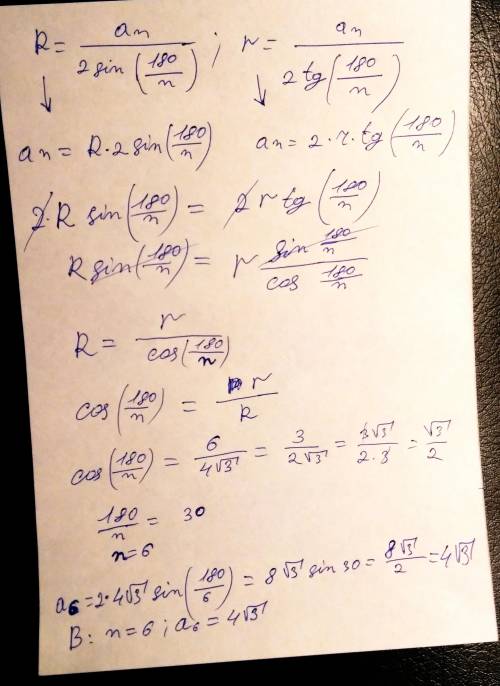 R = an / (2 sin(180/n)) ; r = an / (2 tg(180/n))
↓ ↓
an = R·2 sin(180/n) an = 2·r·tg(180/n)
2·R sin(180/n) = 2 r tg(180/n)
R sin(180/n) = r (sin 180/n) / (cos 180/n)
R = r / cos(180/n)
cos(180/n) = r / R
cos(180/n) = 6/(4√3) = 3/(2√3) = 3√3/(2·3) = √3/2
180/n = 30
n=6
a6 = 2·4√3 sin(180/6) = 8√3 sin 30 = 8√3/2 = 4√3
В: n=6 ; a6 = 4√3